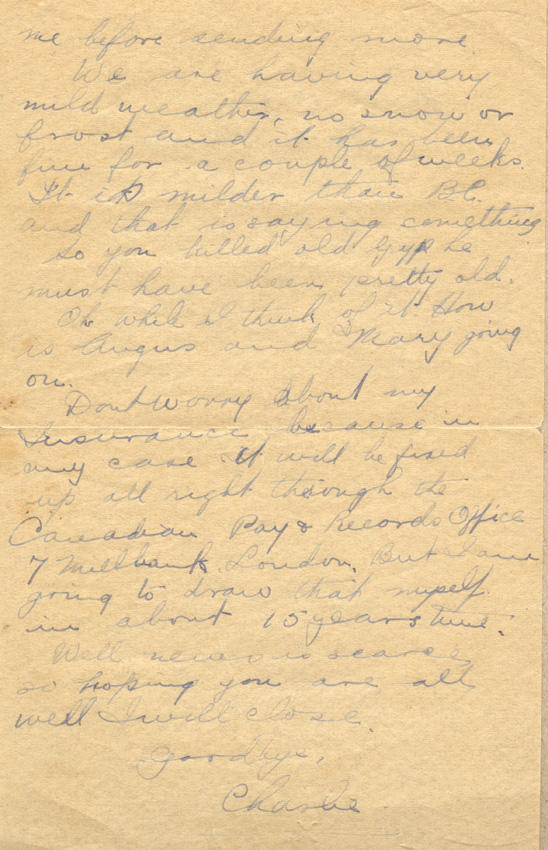 me before sending more.
We are having very
mild weather, no snow or
frost and it has been
fine for a couple of weeks.
It is milder than B.C.
and that is saying something
So you killed old Gyp he
must have been pretty old.
Oh while I think of it How
is Angus and Mary going
on.
Dont worry about my
Insurance, because in
my case it will be fixed
up all right through the
Canadian Pay & Records Office
7 Millbank London, But I am
going to draw that myself
in about 15 years time.
Well news is scarce
so hoping you are all
well I will close.
Goodbye,
Charlie